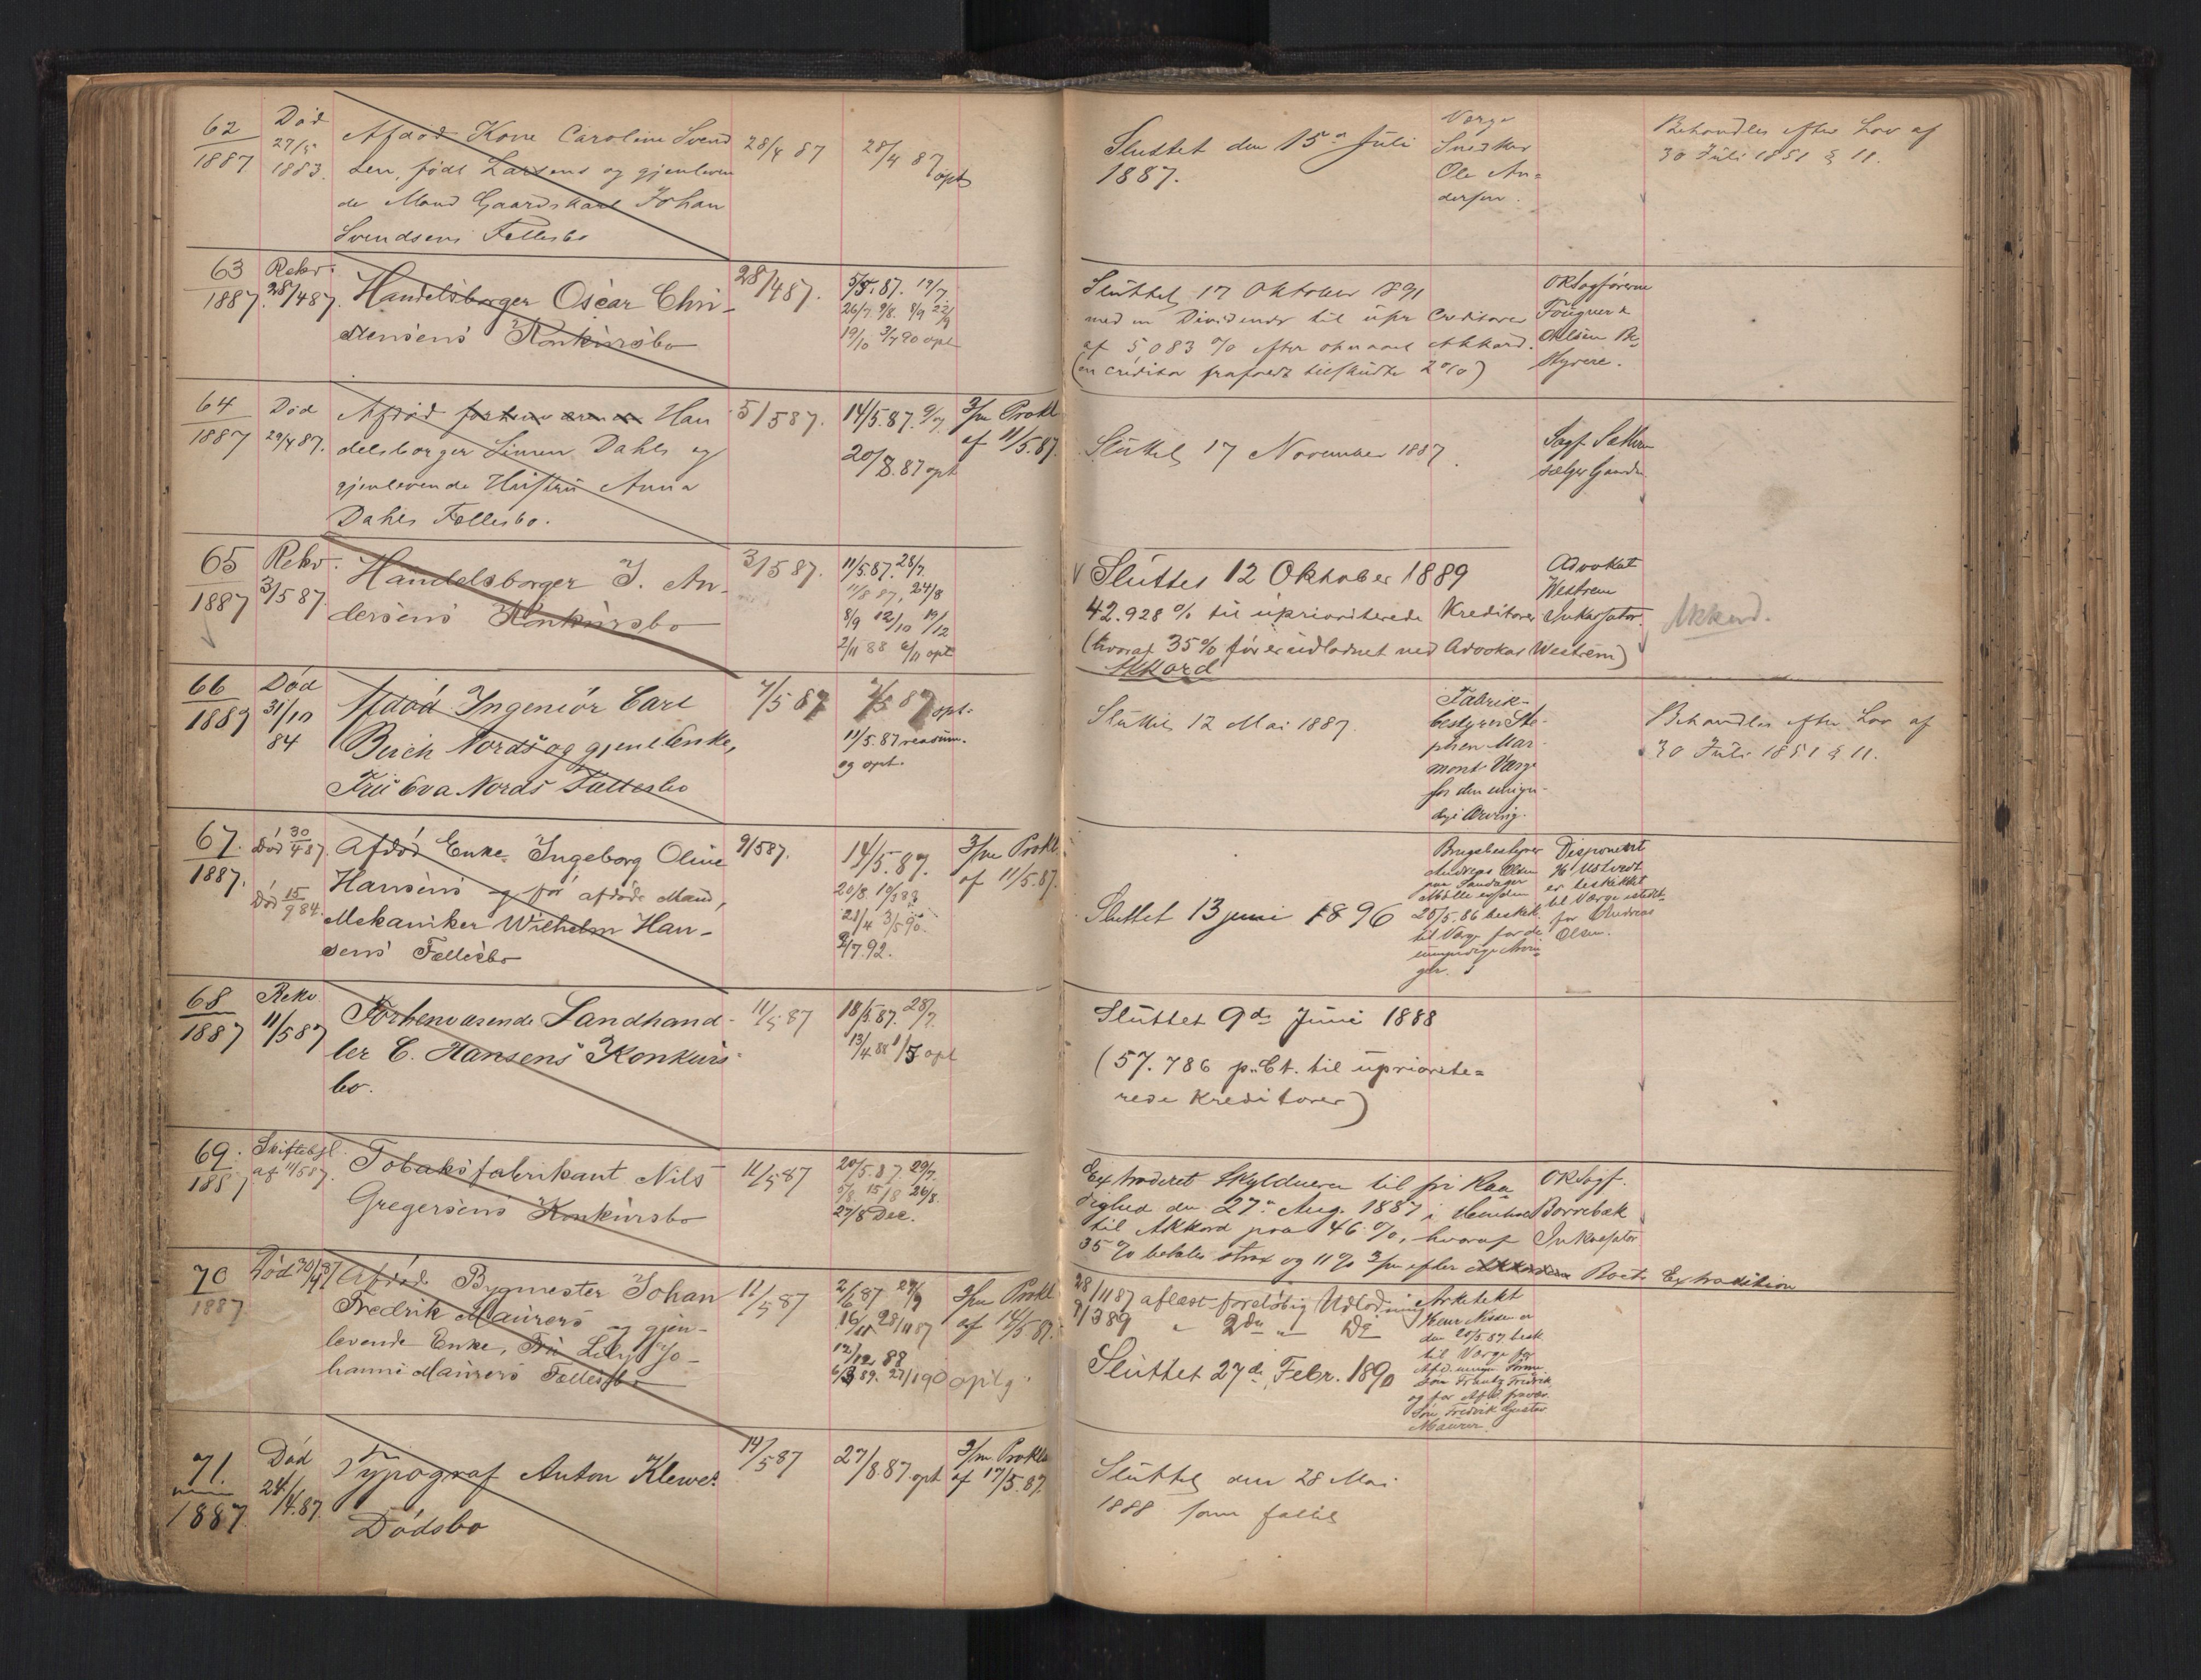 62
1887
Død
27/5
1883.
Afdød Kone Caroline Svend
sen, født Larsens og gjenleven
de Mand Gaardskarl Johan
Svendsens Fællesbo
28/4 87
28/4 87
opt
Sluttet den 15de Juli
1887.
Værge
Snedker
Ole An=
dersen.
Behandles efter Lov af
30 Juli 1851 § 11.
63
1887.
Rekv.
28/4 87.
Handelsborger Oscar Chri-
stensens Konkursbo
28/4 87.
5/5.87. 19/7
26/7. 9/8. 8/9 22/9
19/10 3/7 90 opt
Sluttet 17 Oktober 1891
med en Dividende til upr Creditorer
af 5,083 % efter opnaaet Akkord.
(en creditor frafaldt tilskudte 2%)
ORSagførerne
Fougner &
Ohlsen Be
styrere.
64
1887
Død
29/4 87.
Afdød Han
delsborger Simen Dahls og
gjenlevende Hustru Anna
Dahls Fællesbo.
5/5 87.
14/5.87. 9/7
20/8.87 opt
3/m Prokl
af 11/5.87.
Sluttet 17 November 1887.
Sagf.
65
1887
Rekv.
3/5 87
Handelsborger J. An-
dersens Konkursbo
3/5 87.
11/5.87. 28/7.
11/8 87, 24/8
8/9 12/10 19/12
2/11 88 6/11 opt
Sluttet 12 Oktober 1889
42.928 % til uprioriterede Kreditorer
(hvoraf 35% før er udloddet ved Advokat Westrem)
Akkord
Advokat
Westrem
Inkassator.
Akkord.
66
1887
Død
31/10
84
Afdød Ingeniør Carl
Birch Nords og gjenl Enke,
Fru Eva Nords Fællesbo
7/5 87
7/5 87 opt.
11/5.87 reasum.
og opt.
Sluttet 12 Mai 1887.
Fabrik-
bestyrer Ste-
phen Mar-
mont Værge
for den umyn-
dige Arving.
Behandles efter Lov af
30 Juli 1851 § 11.
67.
1887.
Død 30/4 87.
Død 15/9 84.
Afdød Enke Ingeborg Oline
Hansens og før afdøde Mand,
Mekaniker Wilhelm Han-
sens Fællesbo
9/5 87.
14/5.87.
3/m Prokl.
af 11/5.87.
Sluttet 13 juni 1896
Brugsbestyrer
Andreas Olsen
paa Sandager
Mølle
25/5.86 beskik.
til Værge for de
umyndige Arvin-
ger.
Disponent
H. Ustvedt
er beskikket
til Værge istedt-
for Andreas
Olsen.
68
1887
Rekv
11/5 87
Forhenværende Landhand-
ler C. Hansens Konkurs-
bo.
11/5 87
18/5.87. 28/7.
13/4 88 1/5 opt
Sluttet 9de Juni 1888
(57.786 p.Ct. til upriorite=
rede Kreditorer)
69.
1887
Skiftebsl.
af 11/5 87.
Tobaksfabrikant Nils
Gregersens Konkursbo
11/5 87
20/5.87. 29/7.
5/8. 15/8 26/8.
27/8 Dec.
Extraderet Skyldneren til fri Raa
dighed den 27de Aug. 1887 i Henhold
til Akkord paa 46 %, hvoraf
35 % betales strax og 11% 3/m efter Boets Extradition
ORSagf.
Borrebæk
Inkassator
70
1887
Død 30/4 87
Afdød Bygmester Johan
Fredrik Maurers og gjen-
levende Enke, Fru Lilly Jo-
hanne Maurers Fællesbo
11/5 87
2/6 87 27/9
16/11 28/11 87
12/12 88
6/3 89. 27/1 90 optg.
3/m Prokl
af 14/5 87.
28/11 87 aflæst foreløbig Udlodning
9/3 89 " 2den " Do
Sluttet 27de Febr. 1890
Arkitekt
den 25/5.87 besk
til Værge for
Søn Frantz Fredrik
og for Afd. fravær.
Søn Fredrik Gustav
Maurer.
71.
1887.
Død
24/4.87.
Typograf Anton Klewes
Dødsbo
14/5 87
27/8.87 opt
3/m. Prokl.
af 17/5.87.
Sluttet den 28 Mai
1888 som fallit